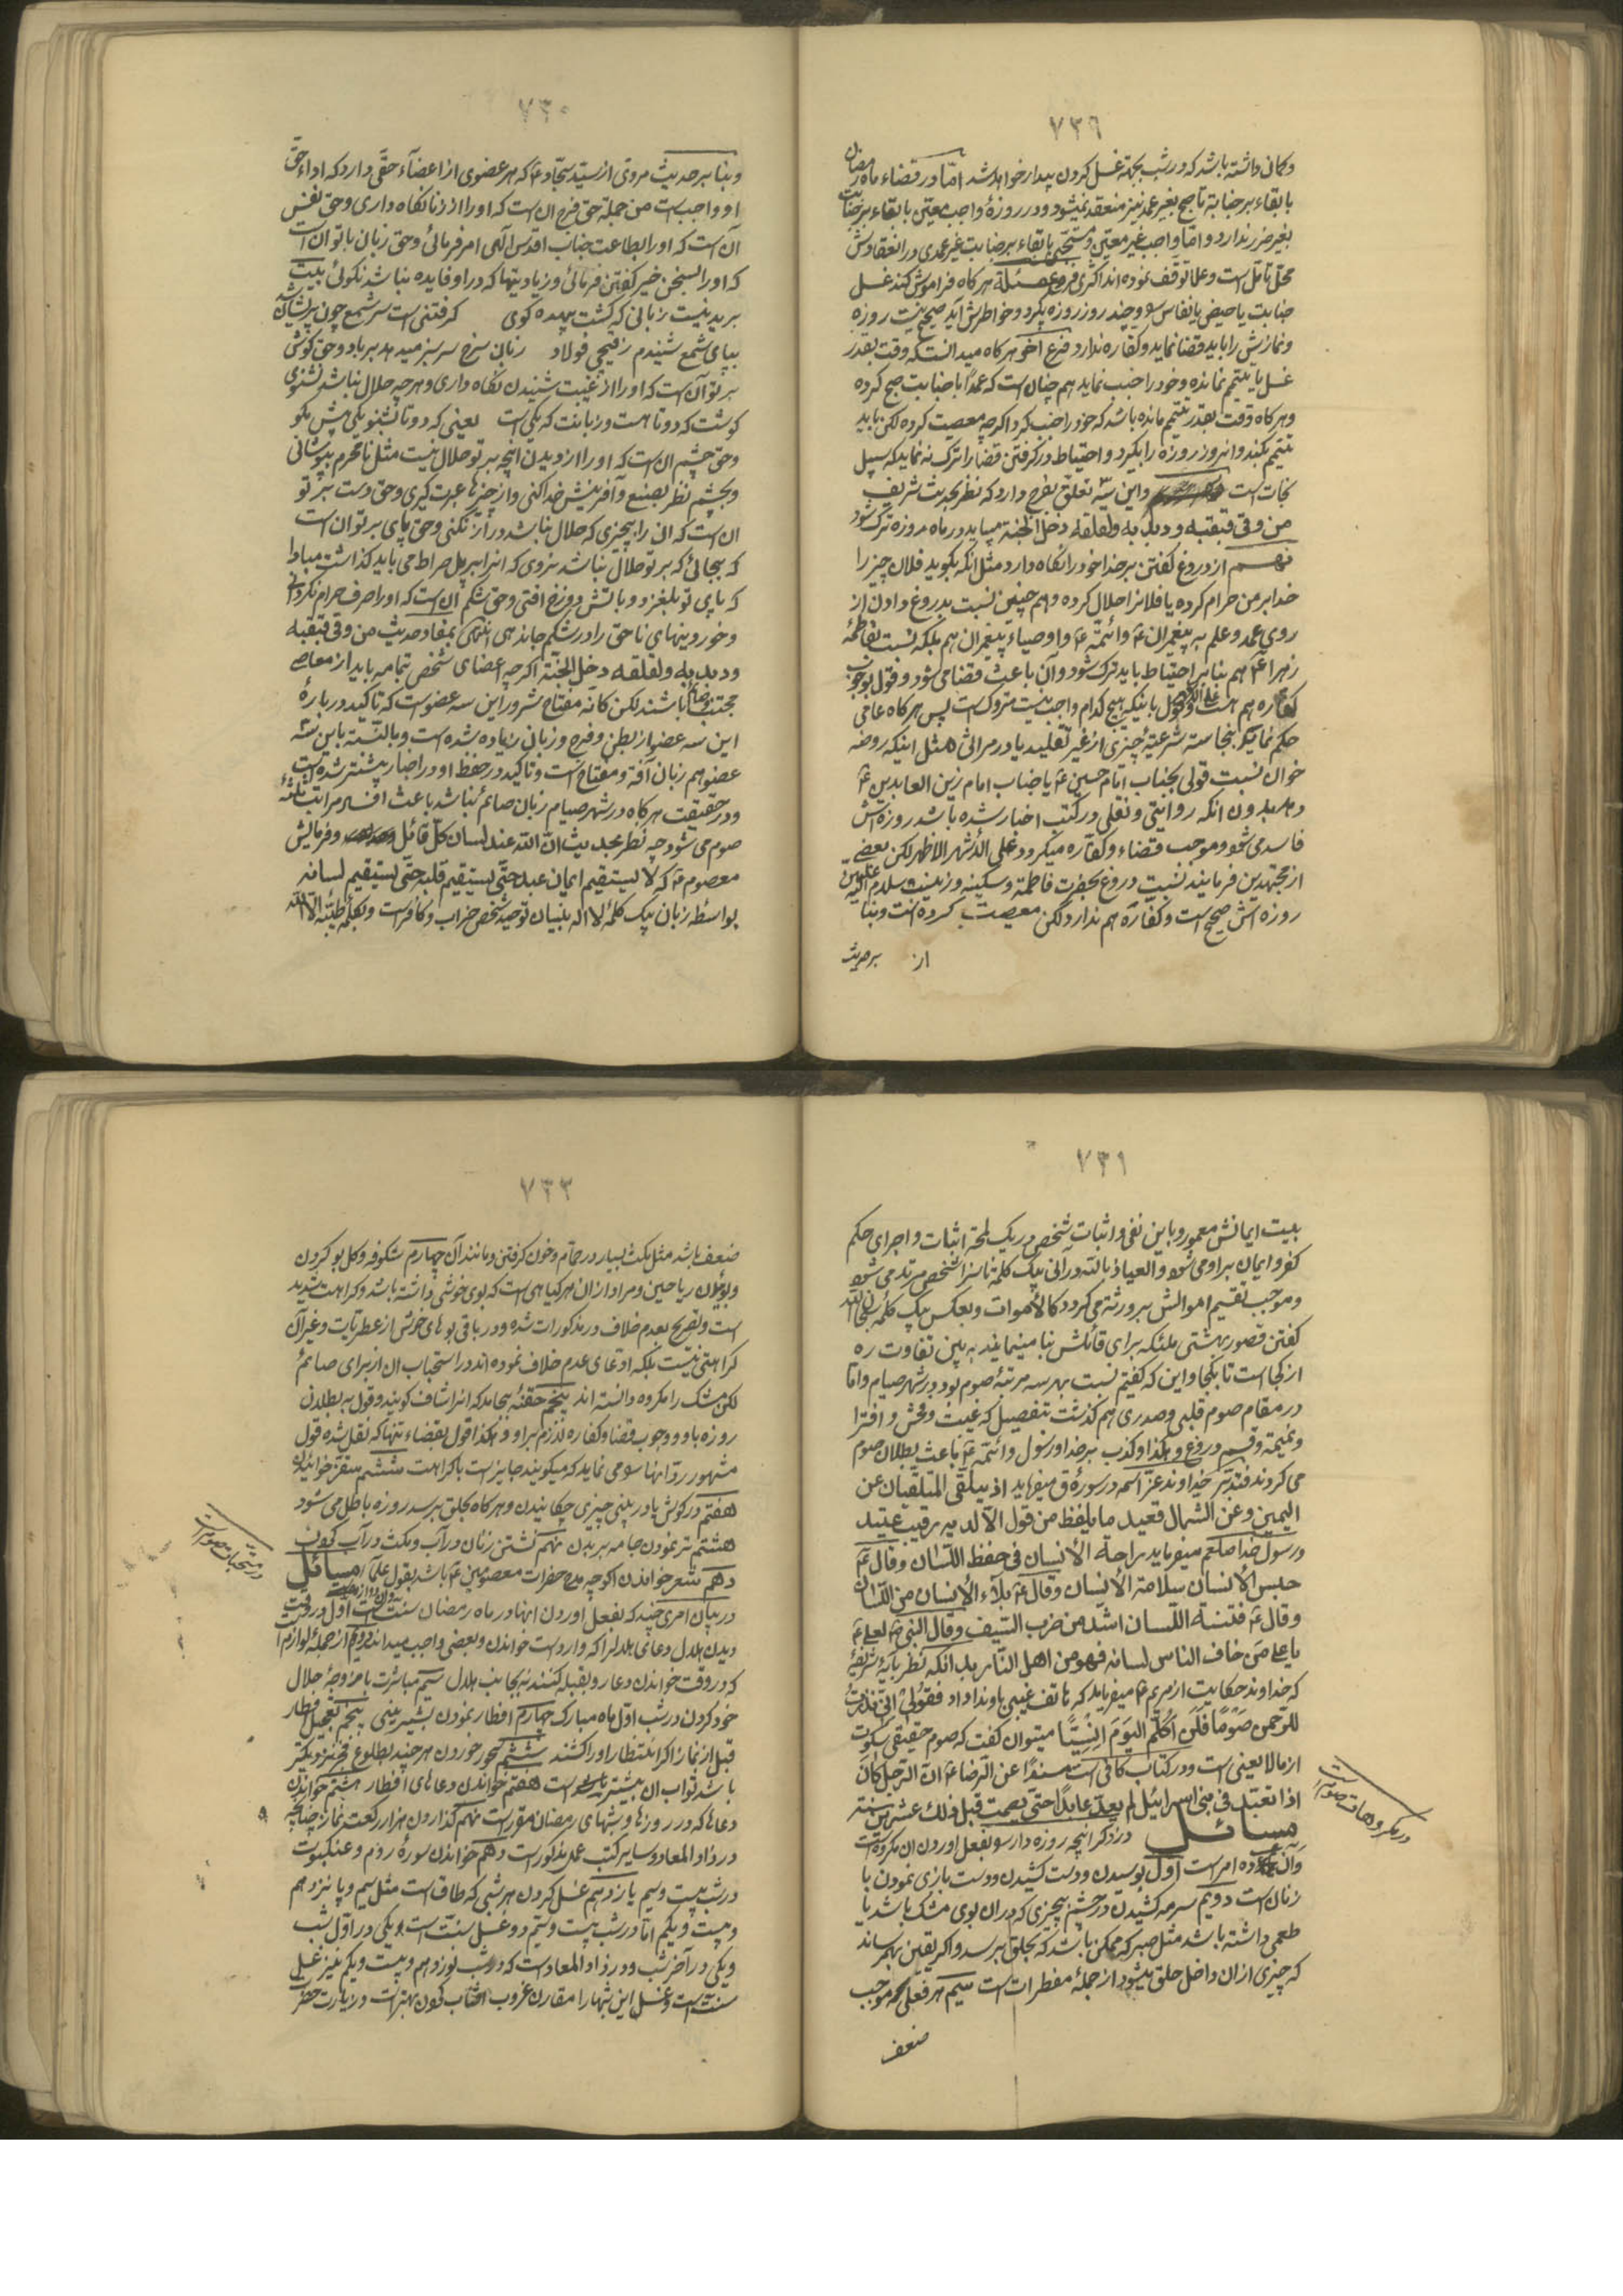 ٧٢٩
وکمان داشته باشد که در شب بجهة غسل کردن بیدار خواهد شد امّا در قضاء ماه رمضان
با بقاء بر جنابة تا صبح بغیر عمد نیز منعقد نمیشود و در روزهٔ واجب معیّن با بقاء بر جنابت
بغیر ضرر ندارد و امّا واجب غیر معیّن و مستحبّی با بقاء بر جنابت غیر عمدی در انعقادش
محلّ تامّل است و علما توقّف نموده اند اکثری مسئلة هرکاه فراموش کند غسل
جنابت یا حیض یا نفاس و چند روز روزه بکیرد و خواطرش آید صحیح نیست روزه
و نمازش را باید قضا نماید و کفّاره ندارد فرع آخر هرکاه میدانست که وقت بقدر
غسل یا تیمّم نمانده و خود را جنب نماید هم چنان است که عمداً با جنابت صبح کرده
و هرکاه وقت بقدر تیمّم مانده باشد که خود را جنب کرد اکرچه معصیت کرده لکن باید
تیمّم بکند و انروز روزه را بکیرد و احتیاط در کرفتن قضا را ترک نه نماید که سبیل
نجات است و این سه تعلّق بفرج دارد که نظر بحدیث شریف
من وقی قبقبه و دبدبه و لقلقه دخل الجنة میباید در ماه روزه ترک شود
نهم از دروغ کفتن بر خدا خود را نکاه دارد مثل انکه بکوید فلان چیز را
خدا بر من حرام کرده یا فلانرا حلال کرده و هم چنین نسبت بدروغ دادن از
روی عمد و علم به پیغمبران ع و ائمّه ع و اوصیاء پیغمبران هم بلکه نسبت بفاطمهٔ
زهرا ع هم بنابر احتیاط باید ترک شود و آن باعث قضا می شود و قول بوجوب
کفّاره هم هست و قول باینکه هیچ کدام واجب نیست متروک است پس هرکاه عامی
حکم نماید بنجاسته شرعیّهٔ چیزی از غیر تقلید یا در مراثی مثل اینکه روضه
خوان نسبت قولی بجناب امام حسین ع یا جناب امام زین العابدین ع
دهد بدون انکه روایتی و نقلی در کتب اخبار شده باشد روزه اش
فاسد می شود و موجب قضاء و کفّاره میکردد علی الأشهر الاظهر لکن بعضی
از مجتهدین فرمایند نسبت دروغ بحضرت فاطمة و سکینه و زینب سلام الله علیهنّ
روزه اش صحیح است و کفّاره هم ندارد لکن معصیت کرده است و بنا
بر حدیث
٧٣٠
و بنا بر حدیث مروی از سیّد سجّاد ع که هر عضوی از اعضآء حقّی دارد که اداء حق
او واجب است من جمله حق فرج ان است که او را از زنا نکاه داری و حق نفس
آن است که او را بطاعت جناب اقدس الهی امر فرمائی و حق زبان با تو ان است
که او را بسخن خیر کفتن فرمائی و زیادتیها که در او فایده نباشد نکوئی بیت
بریدنیست زبانی که کشت بیهده کوی کرفتنی است سر شمع چون پریشان شد
بپای شمع شنیدم ز قیچی فولاد زبان سرخ سر سبز میدهد برباد و حق کوش
بر تو آن است که او را از غیبت شنیدن نکاه داری و هرچه حلال نباشد نشنوی
کوشت که دوتا هست و زبانت که یکی است یعنی که دو تا بشنو یکی بیش مکو
و حق چشم ان است که او را از دیدن انچه بر تو حلال نیست مثل نامحرم بپوشانی
و بچشم نظر بصنیع و آفرینش خدا کنی و از چیزها عبرت کیری و حق دست بر تو
ان است که ان را بچیزی که حلال نباشد دراز نکنی و حق پای بر تو ان است
که بجائی که بر تو حلال نباشد نروی که انرا بر پل صراط می باید کذاشت مبادا
که پای تو بلغزد و باتش دوزخ افتی و حق شکم ان است که او را ظرف حرام نکردانی
و خوردنیهای ناحق را در شکم جا ندهی انتهی بمفاد حدیث من وقی قبقبه
و دبدبه و لقلقه دخل الجنّة اکرچه اعضای شخص بتمامه باید از معاصی
مجتنب باشند لکن کانّه مفتاح شرور این سه عضو است که تاکید در بارهٔ
این سه عضو از بطن و فرج و زبان زیاده شده است و بالنّسبة باین سه
عضو هم زبان آفة و مفتاح است و تاکید در حفظ او در اخبار بیشتر شده است
و در حقیقت هرکاه در شهر صیام زبان صائم نباشد باعث افساد مراتب ثلثهٔ
صوم می شود چه نظر بحدیث انّ الله عند لسان کلّ قائل و فرمایش
معصوم ع که لا یستقیم ایمان عبد حتّی یستقیم قلبه حتّی یستقیم لسانه
بواسطهٔ زبان بیک کلمهٔ لا اله بنیان توحید شخص خراب و کافر است و بکلمهٔ طیّبه الّا الله
٧٣١
بیت ایمانش معمور و باین نفی و اثبات شخص در یک لمحه اثبات و اجرای حکم
کفر و ایمان بر او می شود و العیاذ بالله در انی بیک کلمهٔ ناسزا شخص مرتد می شود
و موجب تقسیم اموالش بر ورثه می کردد کالأموات و بعکس بیک کلمهٔ سبحان الله
کفتن قصور بهشتی ملئکه برای قائلش بنا مینمایند به بین تفاوت ره
از کجا است تا بکجا و این که کفتیم نسبت بهر سه مرتبهٔ صوم بود در شهر صیام و امّا
در مقام صوم قلبی و صدری هم کذشت بتفصیل که غیبت و فحش و افترا
و نمیمة و قسم دروغ و هکذا و کذب بر خدا و رسول و ائمّه ع باعث بطلان صوم
می کردند فتدبّر خداوند عزّ اسمه در سورهٔ ق میفرماید اذ یتلقّی المتلقّیان عن
الیمین و عن الشمال قعید ما یلفظ من قول الّا لدیه رقیب عتید
و رسول خدا صلعم میفرماید راحة الأنسان فی حفظ اللّسان و قال ع
حبس الأنسان سلامة الأنسان و قال ع بلاء الأنسان من اللّسان
و قال ع فتنة اللّسان اشدّ من ضرب السّیف و قال النبی ص لعلی ع
یا علی من خاف الناس لسانه فهو من اهل النّار بدانکه نظر بآیهٔ شریفهٔ
که خداوند حکایت از مریم ع میفرماید که هاتف غیبی باو ندا داد فقولی انّی نذرت
للرّحمن صوماً فلن اکلّم الیوم انسیّا میتوان کفت که صوم حقیقی سکوت
از مالا یعنی است و در کتاب کافی است مسنداً عن الرّضا ع انّ الرّجل کان
اذا تعبّد فی بنی اسرائیل لم یعدّ عابداً حتّی یصمت قبل ذلک عشر سنین
مسائل در ذکر انچه روزه دار سو بفعل اوردن ان مکروه است
و ان ده امر است اوّل بوسیدن و دست کشیدن و دست بازی نمودن با
زنان است دویّم سرمه کشیدن در چشم بچیزی که در ان بوی مشک باشد یا
طعمی داشته باشد مثل صبر که ممکن باشد که بحلق برسد و اکر یقین بهم رساند
که چیزی از ان داخل حلق میشود از جملهٔ مفطرات است سیّم هر فعلی که موجب
ضعف
در مکروهات صوم است
٧٣٢
ضعف باشد مثل مکث بسیار در حمّام و خون کرفتن و مانند آن چهارم شکوفه و کل بو کردن
و بوئیدن ریاحین و مراد از ان هر کیاهی است که بوی خوشی داشته باشد و کراهت شدید
است و تصریح بعدم خلاف در مذکورات شده و در باقی بوهای خوش از عطریّات و غیر آن
کراهتی نیست بلکه ادّعای عدم خلاف نموده اند در استحباب ان از برای صائم
لکن مشک را مکروه دانسته اند پنجم حقنهٔ بجامد که انرا شاف کویند و قول به بطلان
روزه باو و وجوب قضا و کفّاره لازم بر او و هکذا قول بقضاء تنها که نقل شده قول
مشهور ردّ انها را می نماید که میکویند جایز است با کراهت ششم
هفتم در کوش یا در بینی چیزی چکانیدن و هرکاه بحلق برسد روزه باطل می شود
هشتم تر نمودن جامه بر بدن نهم نشستن زنان در آب و مکث در آب کردن
دهم شعر خواندن اکرچه مدح حضرات معصومین ع باشد بقول علما مسائل
در بیان امری چند که بفعل اوردن انها در ماه رمضان سنّت است اوّل در وقت
دیدن هلال دعای هلال را که وارد است خواندن و بعضی واجب میدانند دویّم از جملهٔ لوازم
که در وقت خواندن دعا رو بقبله کنند نه بجانب هلال سیّم مباشرت با زوجهٔ حلال
خود کردن در شب اوّل ماه مبارک چهارم افطار نمودن بشیرینی پنجم تعجیل افطار
قبل از نماز اکر انتظار او را کشند ششم سحور خوردن هر چند بطلوع فجر نزدیکتر
باشد ثواب ان بیشتر است هفتم خواندن دعاهای افطار هشتم خواندن
دعاها که در روزها و شبهای رمضان مقرّر است نهم کذاردن هزار رکعت نماز چنانچه
در زاد المعاد و سایر کتب عمل مذکور است دهم خواندن سورهٔ روم و عنکبوت
در شب بیست و سیم یازدهم غسل کردن هر شبی که طاق است مثل سیم و پانزدهم
و بیست و یکم امّا در شب بیست و سیّم دو غسل سنّت است یکی در اوّل شب
و یکی در آخر شب و در زاد المعاد است که در شب نوزدهم و بیست و یکم نیز غسل
سنّت است و غسل این شبها را مقارن غروب افتاب کردن بهتر است و زیارت حضرت
در مستحبّات صوم است